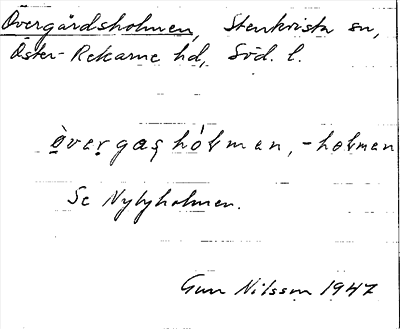 Övergårdsholmen, Stenkvista sn,
Öster-Rekarne hd, Söd. l.
òvərgashólmen, -holmen
Se Nybyholmen.
Gun Nilsson 1947